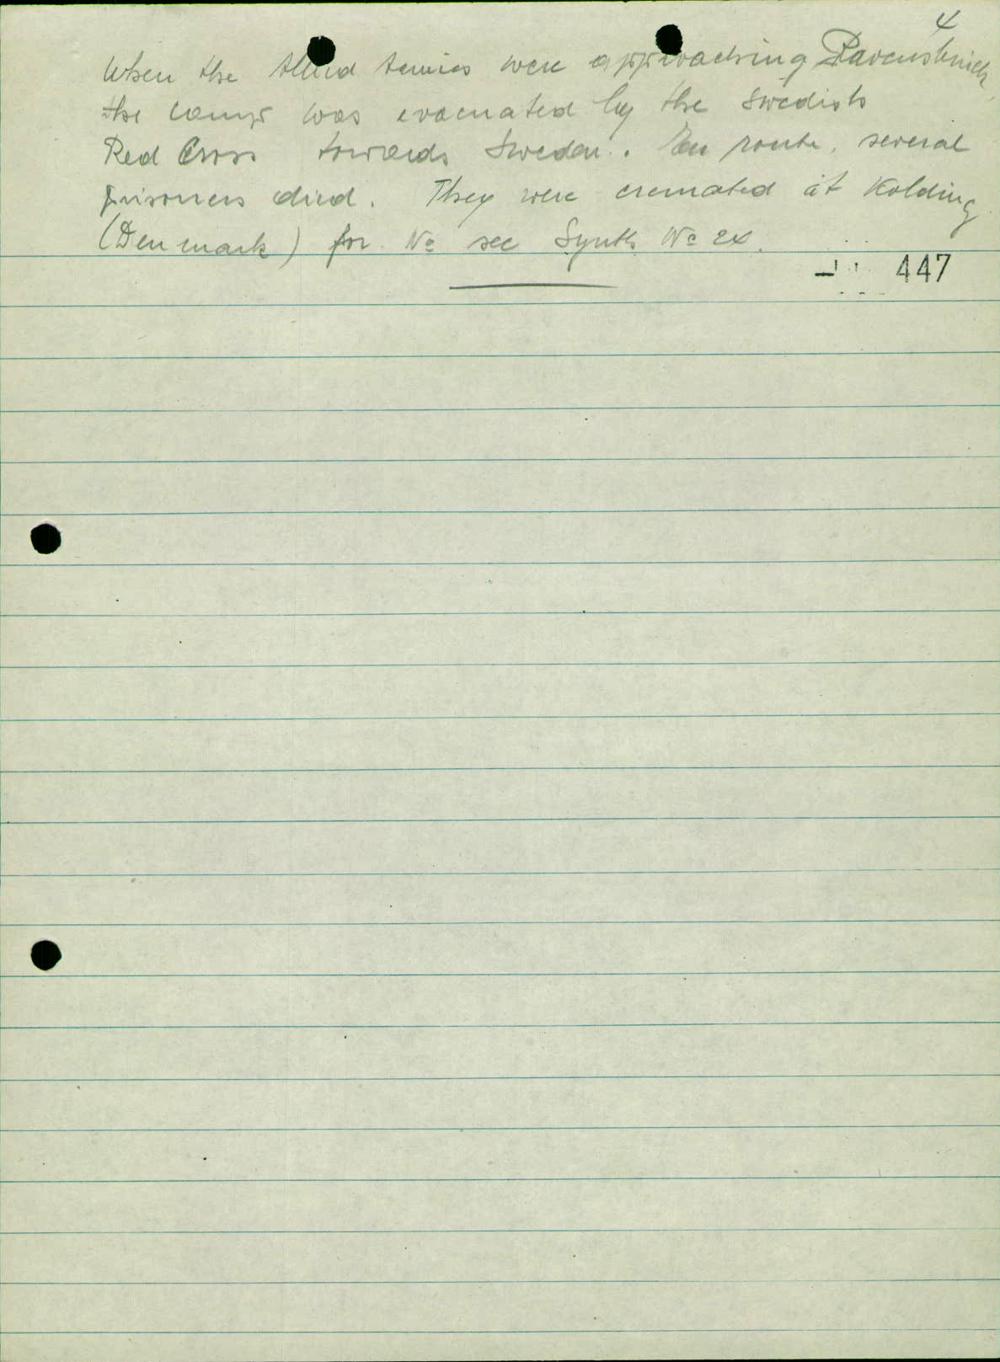 4
When the Allied Armies were approaching Ravensbrück
the camp was evacuated by the Swedish
Red Cross towards Sweden. En route, several
prisoners died. They were cremated at Kolding
(Denmark) for Nº see Synth. Nº 24.
447